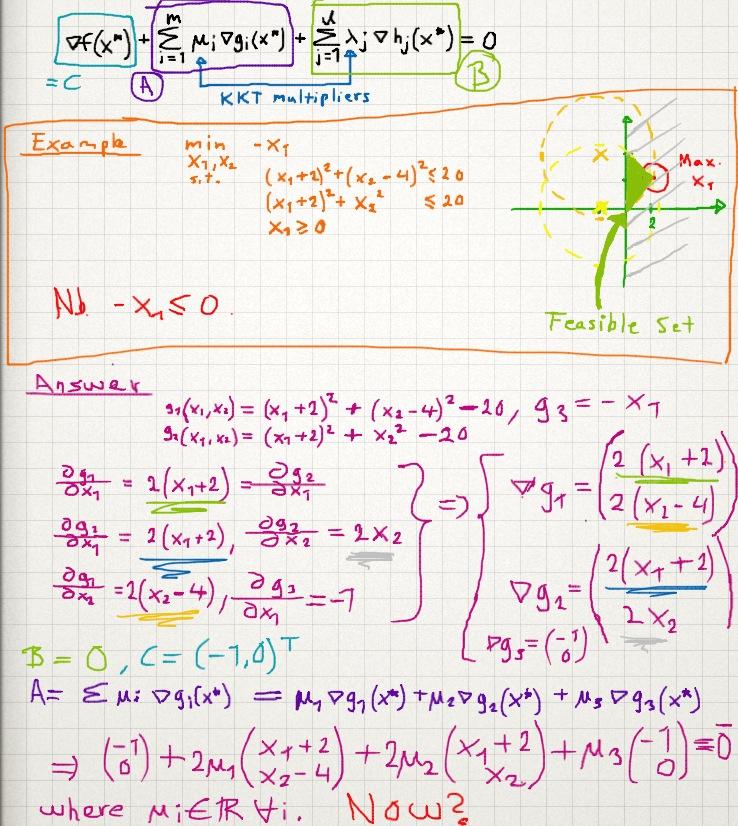 ∇f(x*) + Σ_{i=1}^{m} μi ∇gi(x*) + Σ_{j=1}^{l} λj ∇hj(x*) = 0
= C A B
KKT multipliers
Example min -x1
x1,x2
s.t. (x1+2)²+(x2-4)² ≤ 20
(x1+2)²+x2² ≤ 20
x1 ≥ 0
Max.
x1
2
Nb. -x1 ≤ 0.
Feasible Set
Answer
g1(x1,x2) = (x1+2)² + (x2-4)² -20, g3 = -x1
g2(x1,x2) = (x1+2)² + x2² -20
∂g1/∂x1 = 2(x1+2) = ∂g2/∂x1
∂g2/∂x1 = 2(x1+2), ∂g2/∂x2 = 2x2
∂g1/∂x2 = 2(x2-4), ∂g3/∂x1 = -1
=> ∇g1 = (2(x1+2) 2(x2-4))
∇g2 = (2(x1+2) 2x2)
∇g3 = (-1 0)
B = 0, C = (-1,0)ᵀ
A = Σ μi ∇gi(x*) = μ1 ∇g1(x*) + μ2 ∇g2(x*) + μ3 ∇g3(x*)
⇒ (-1 0) + 2μ1 (x1+2 x2-4) + 2μ2 (x1+2 x2) + μ3 (-1 0) = 0̄
where μi∈ℝ ∀i. Now?